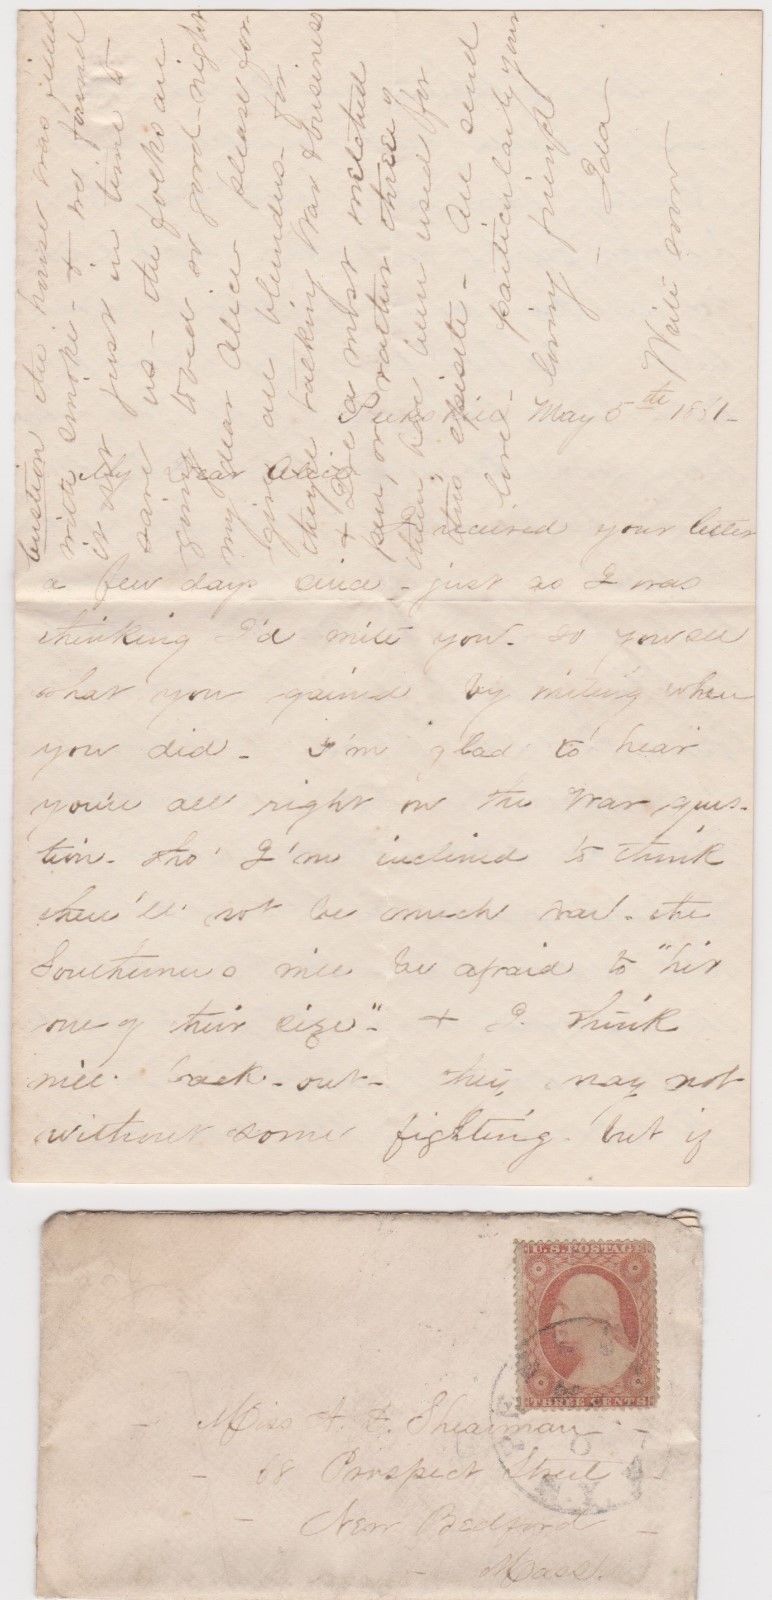 Peekskill May 5th 1861-
My Dear Alice
I received your letter
a few days since - just as I was
thinking I'd write you. so you see
what you gained by writing when
you did - I'm glad to hear
you're all right on the war ques-
tion - tho' I'm inclined to think
there'll not be much war - the
Southerners will be afraid to "hit
one of their size" - + I think
will back - out - they may not
without some fighting. but if
the house was filled
with smoke - + we found
it out just in time to
save us - the folks are
going to bed so good-night
my dear Alice - please for-
give all blunders - for
they're talking War + business
+ I've a most wretched
pen, or rather three of
them, have been used for
this epistle - All send
love - particularly your
loving friend
- Ida
Write soon
U.S. POSTAGE
THREE CENTS
N.Y.
- Miss A. Shearman -
- 68 Prospect Street -
- New Bedford -
- Mass.